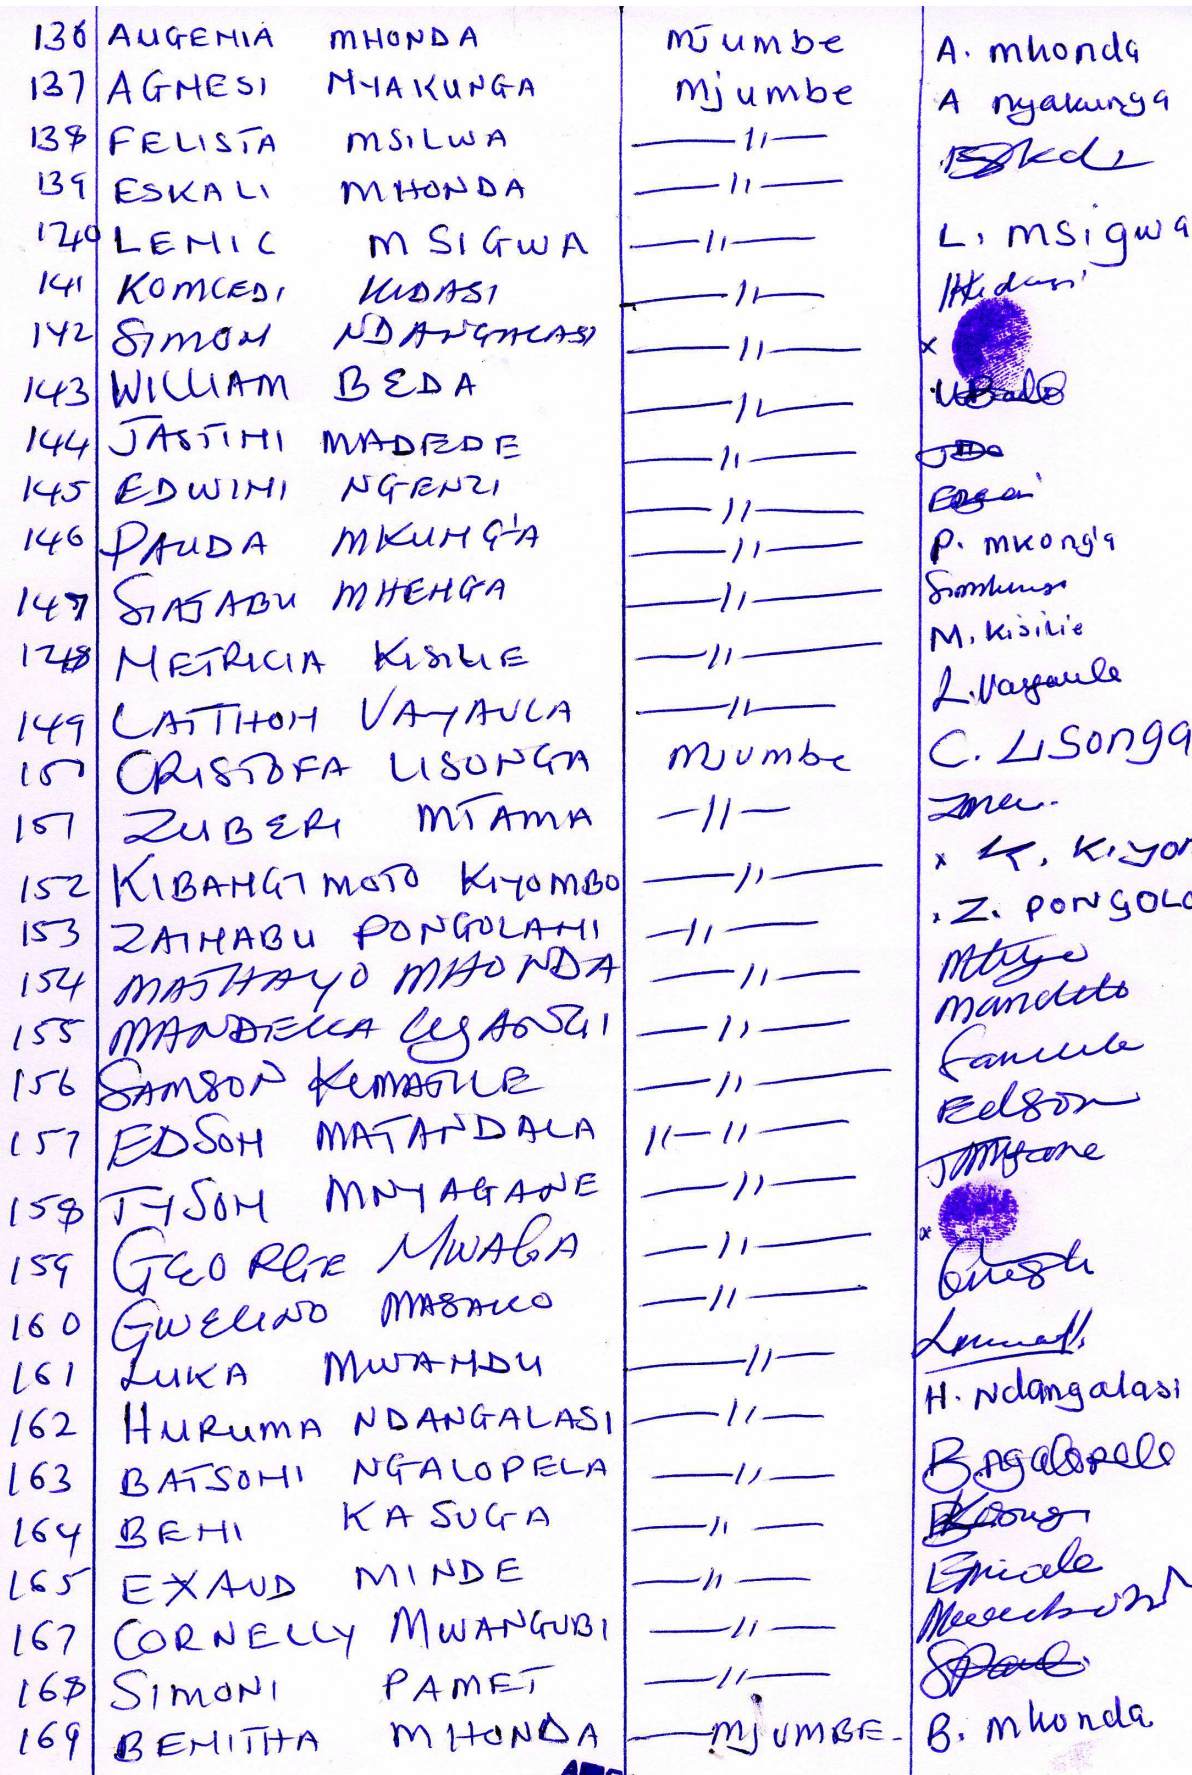 136 AUGENIA MHONDA Mjumbe A. mhonda
137 AGNESI NYAKUNGA Mjumbe A nyakunga
138 FELISTA MSILWA —〃—
139 ESKALI MHONDA —〃—
140 LENIC MSIGWA —〃— L. MSigwa
141 KOMCEDI KIDASI —〃— Kidasi
142 SIMON NDANGALASI —〃— x
143 WILLIAM BEDA —〃—
144 JASTINI MADEDE —〃—
145 EDWINI NGENZI —〃—
146 PAUDA MKUNG'A —〃— P. MKong'a
147 SIAJABU MHENGA —〃—
148 METRICIA KISILIE —〃— M. Kisilie
149 LAITHON VAYAULA —〃— L. Vayaula
150 CRISTOFA LISONGA Mjumbe C. LISonga
151 ZUBERI MTAMA —〃—
152 KIBANGIMOTO KIYOMBO —〃— x K. Kiyom
153 ZAINABU PONGOLANI —〃— Z. PONGOLO
154 MATHAYO MHONDA —〃—
155 MANDELLA —〃—
156 SAMSON KEMAGILE —〃—
157 EDSON MATANDALA 〃—〃— Edson
158 TYSON MNYAGANE —〃—
159 GEORGE MWAGA —〃— x
160 GWELINO MASAKO —〃—
161 LUKA MWANDU —〃—
162 HURUMA NDANGALASI —〃— H. Ndangalasi
163 BATSONI NGALOPELA —〃— B. ngalopela
164 BENI KASUGA —〃—
165 EXAUD MINDE —〃—
167 CORNELLY MWANGUBI —〃—
168 SIMONI PAMET —〃—
169 BENITHA MHONDA —MJUMBE- B. mhonda